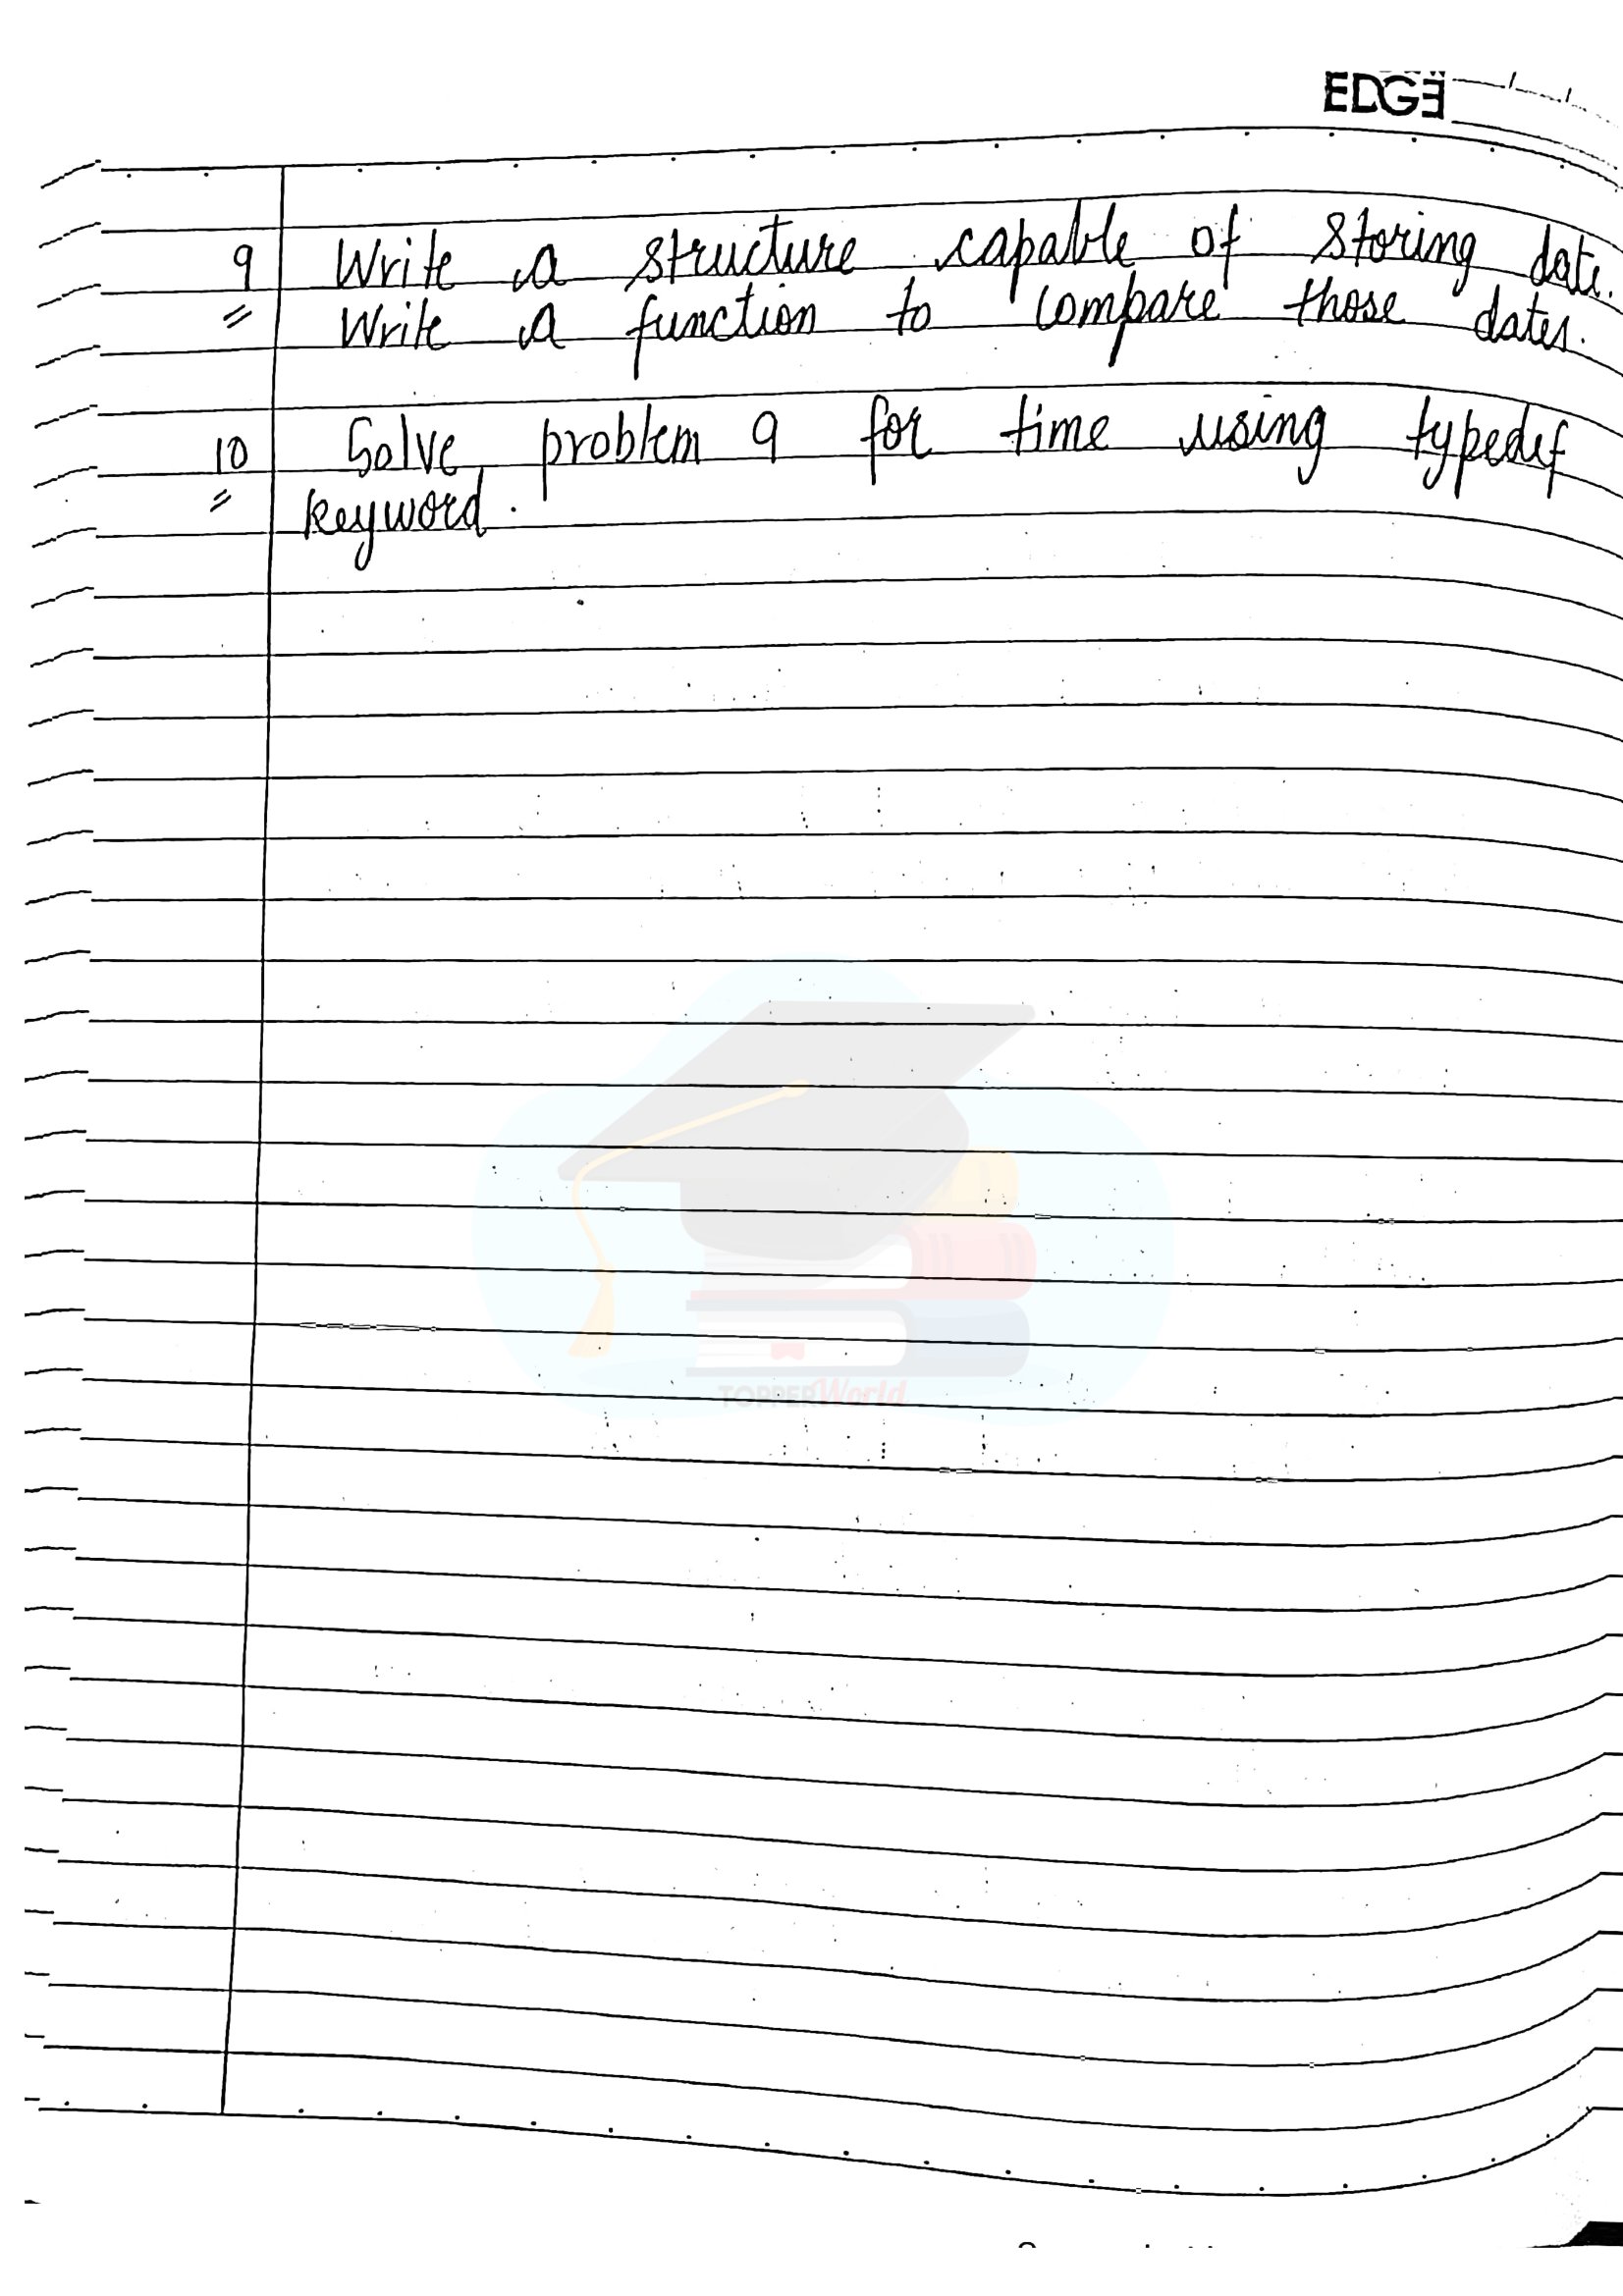 EDGE
9 Write a structure capable of storing date.
Write a function to compare those dates.
10 Solve problem 9 for time using typedef
keyword.
TOPPERWorld